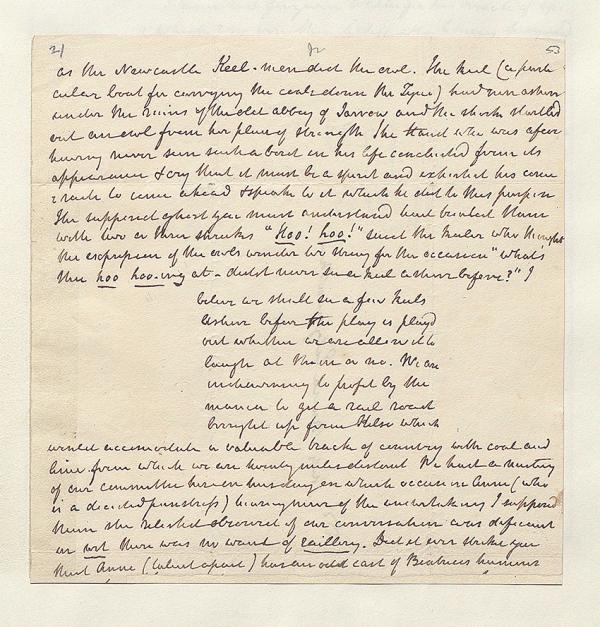 21 53
as the Newcastle Keel-men did the owl. The keel (a parti
cular boat for carrying the coals down the Tyne) had run ashore
under the ruins of the old abbey of Jarrow and the shock startled
out an owl from her place of strength The hand who was afore
having never seen such a bird in his life concluded from its
appearance & cry that it must be a spirit and exhorted his com
rade to come ahead & speak to it which he did to this purpose
The supposed ghost you must understand had treated them
with two or three shrieks "hoo! hoo!" said the keeler who thought
the expression of the owls wonder too strong for the occasion "what's
thou hoo hoo-ing at - didst never see a keel ashore before?" I
believe we shall see a few keels
ashore before the play is playd
out whether we are allowd to
laugh at them or no. We are
endeavouring to profit by the
mania to get a rail road
brought up from Kelso which
would accomodate a valuable track of country with coal and
lime from which we are twenty miles distant We had a meeting
of our committee here on tuesday on which occasion Anne (who
is a decided punstress) hearing more of the undertaking I supposed
than she relished observed if our conversation was deficient
in wit there was no want of raillery. Did it ever strike you
that Anne (talent apart) has an odd cast of Beatrices humour